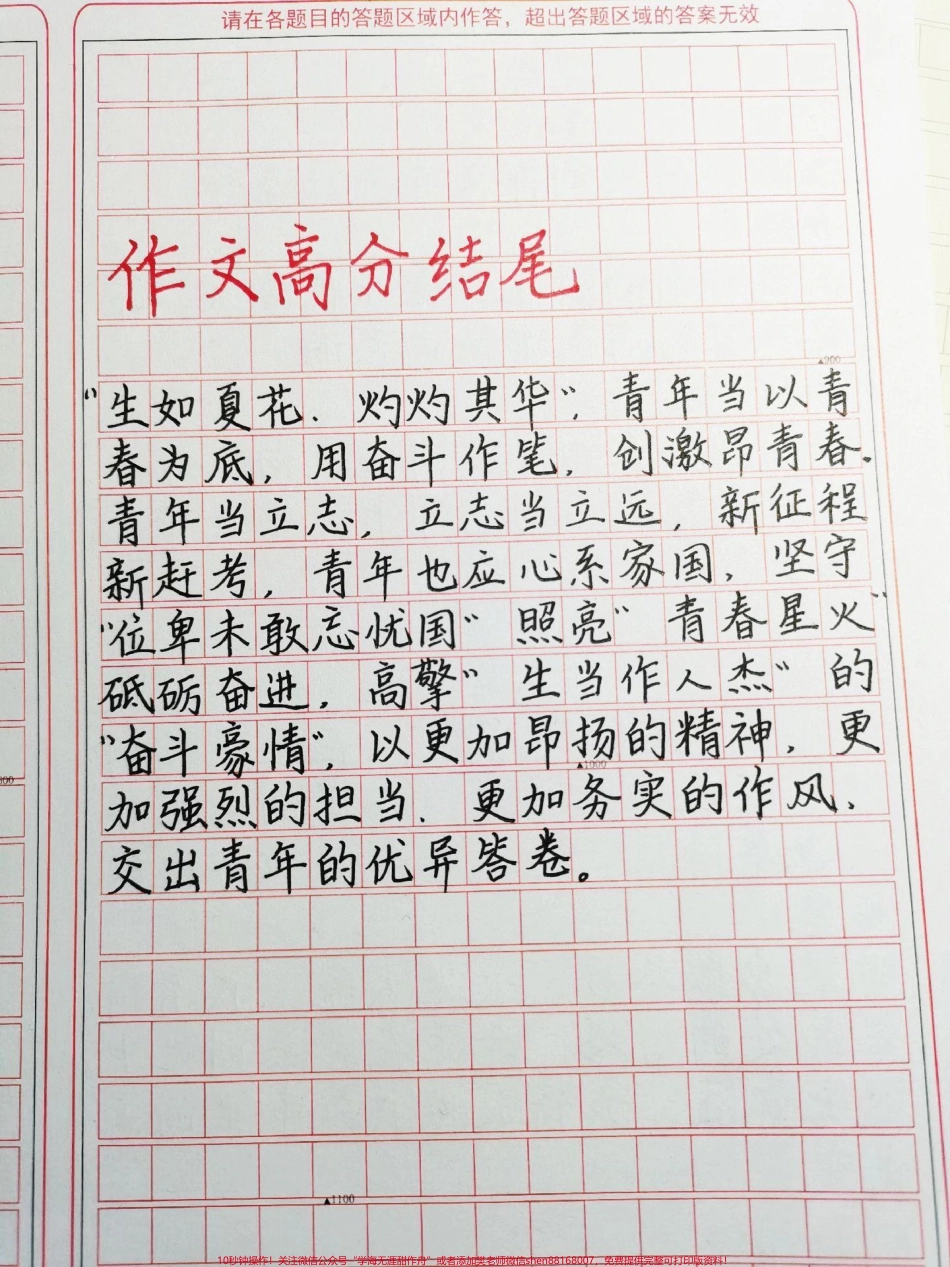 请在各题目的答题区域内作答，超出答题区域的答案无效
作文高分结尾
▲900
“生如夏花．灼灼其华“，青年当以青
春为底，用奋斗作笔，创激昂青春。
青年当立志，立志当立远，新征程
新赶考，青年也应心系家国，坚守
“位卑未敢忘忧国“照亮“青春星火“
砥砺奋进，高擎“生当作人杰“的
“奋斗豪情“，以更加昂扬的精神，更
▲1000
加强烈的担当．更加务实的作风，
交出青年的优异答卷。
▲1100
10秒钟操作！关注微信公众号“学海无涯甜作舟”或者添加樊老师微信shen88168007，免费提供完整可打印版资料！